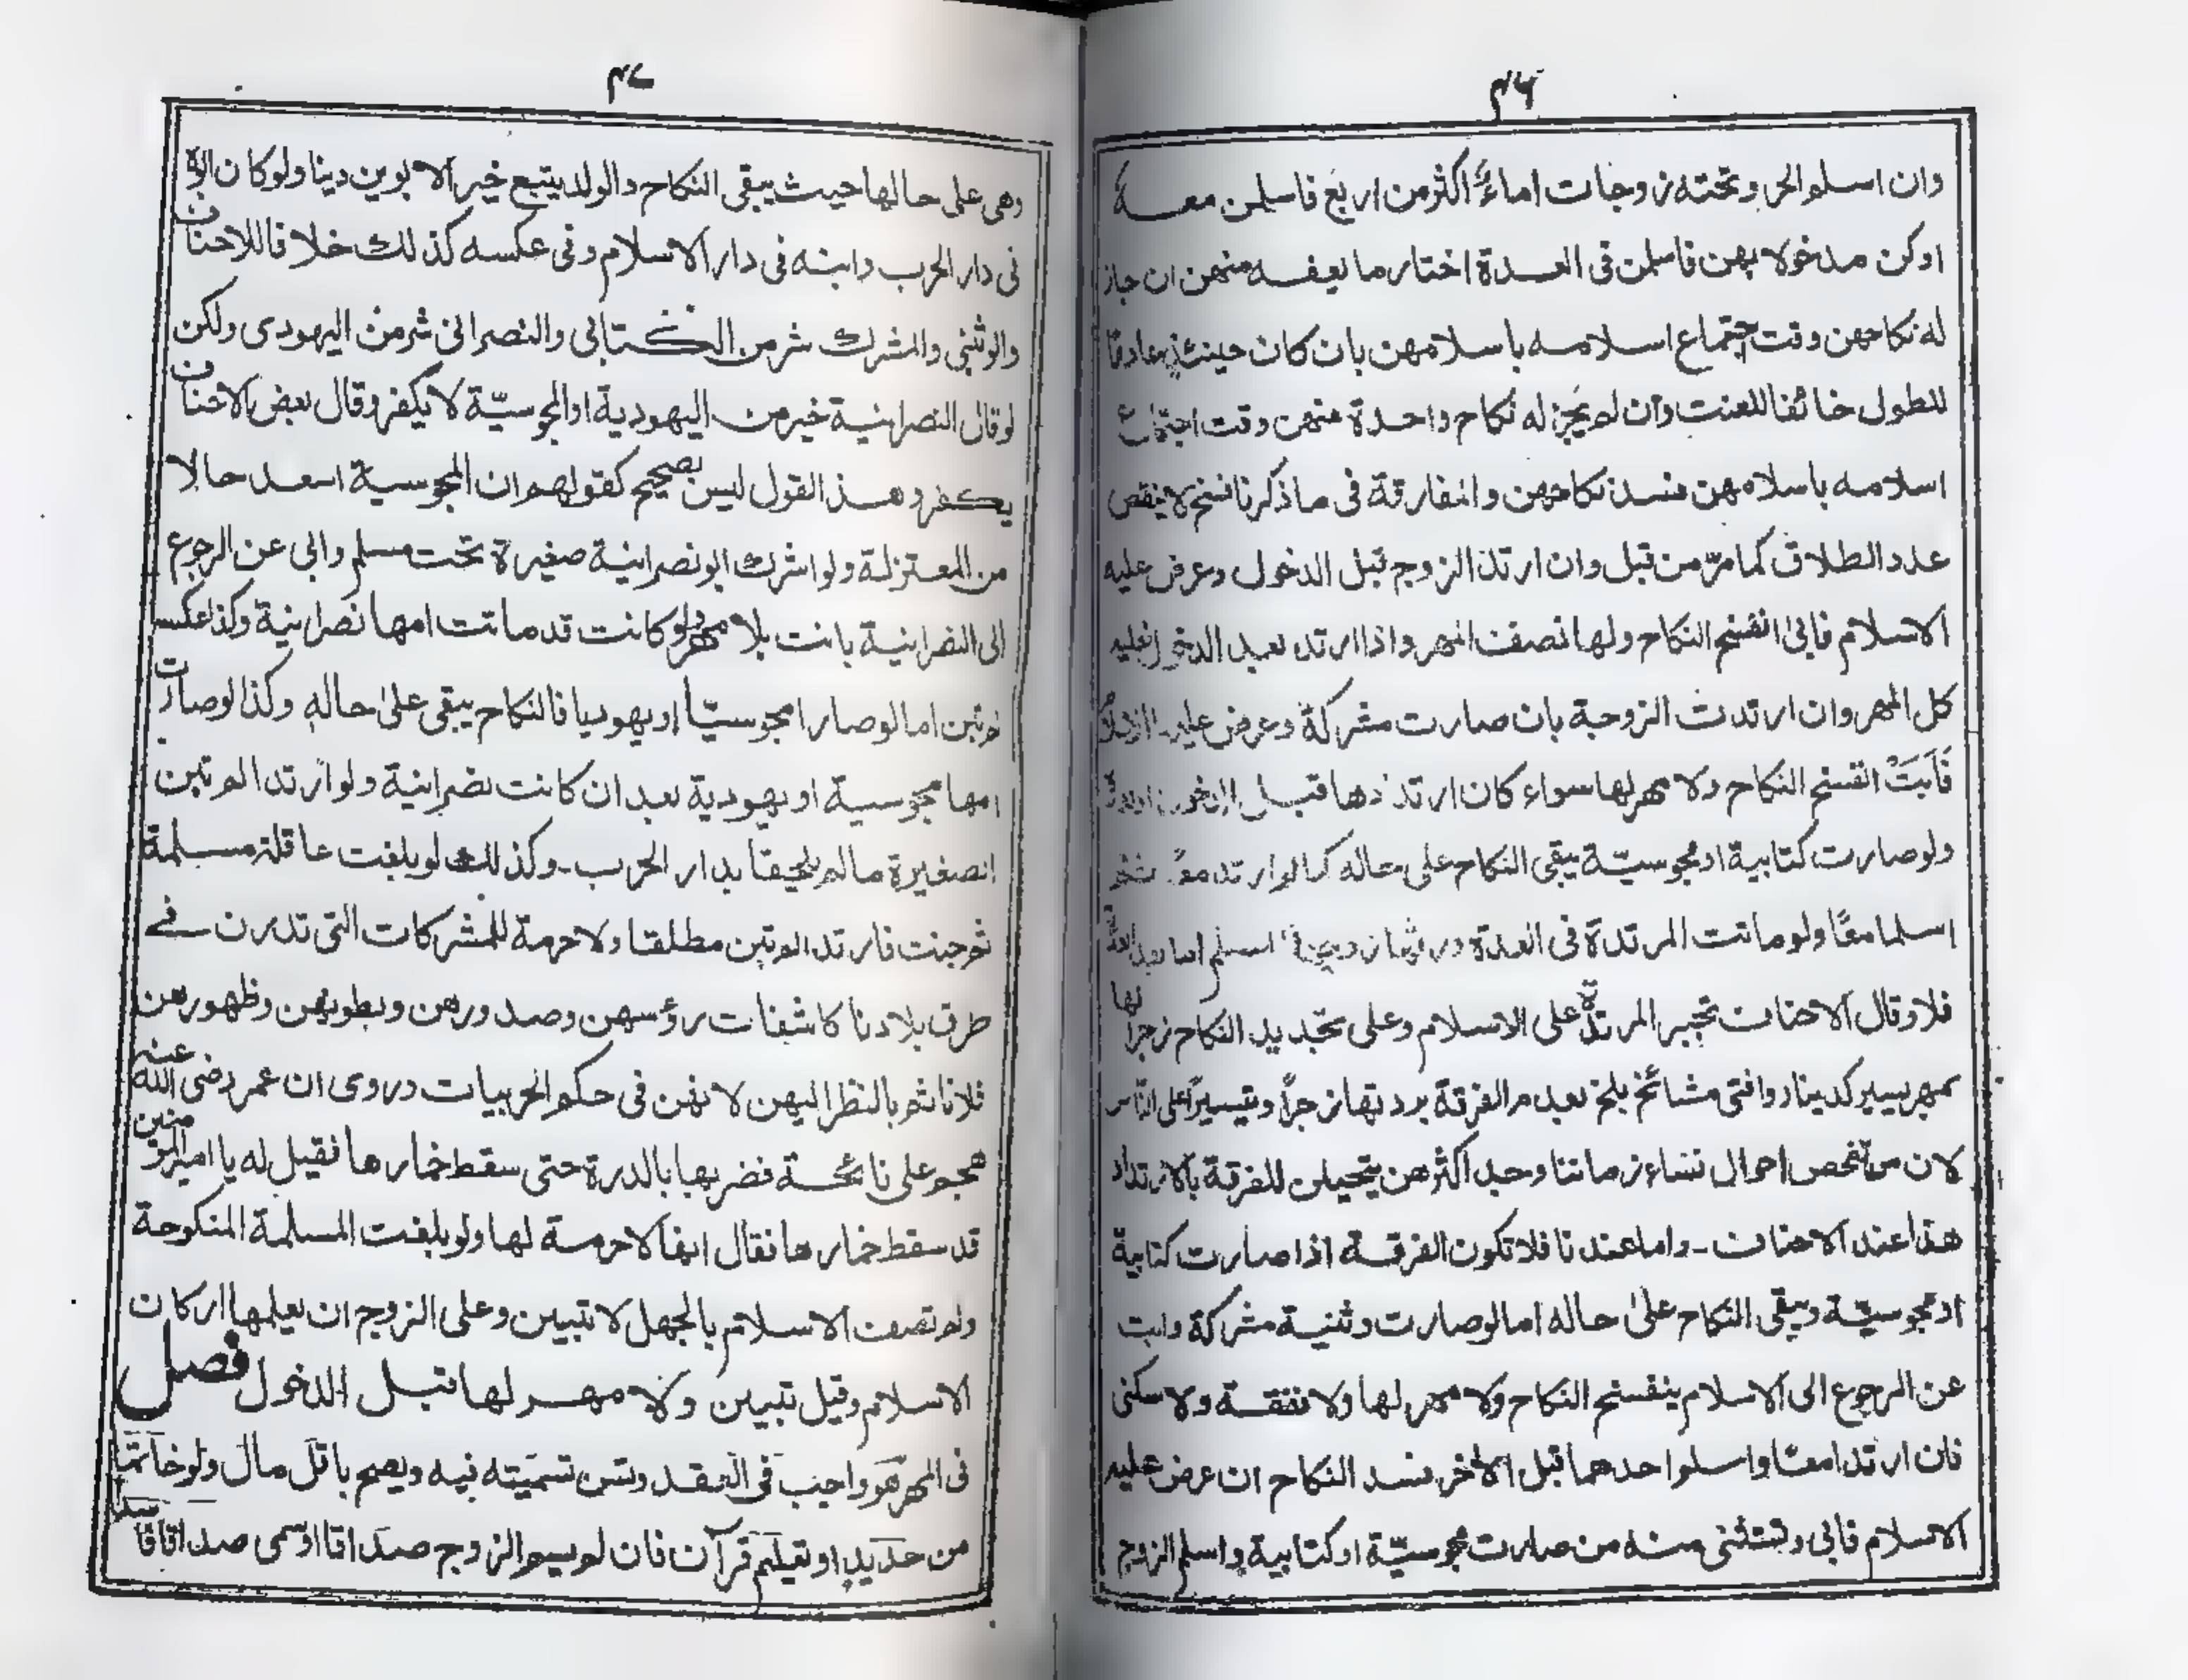 ۴۶
وان اسلم الحر وتحته زوجات اماءً اكثر من اربع فاسلمن معه
او كن مدخولا بهن فاسلمن فى العدة اختار ما يعفه منهن ان جاز
له نكاحهن وقت اجتماع اسلامه باسلامهن بان كان حينئذٍ عادمًا
للطول خائفا للعنت وان لم يجز له نكاح واحدة منهن وقت اجتماع
اسلامه باسلامهن فسد نكاحهن والمفارقة فى ما ذكرنا فسخ لا ينقص
عدد الطلاق كما مرّ من قبل وان ارتد الزوج قبل الدخول وعرض عليه
الاسلام فابىٰ انفسخ النكاح ولها نصف المهر واذا ارتد بعد الدخول فعليه
كل المهر وان ارتدت الزوجة بان صارت مشركة وعرض عليها الاسلام
فَاَبَتْ انفسخ النكاح ولا مهر لها سواء كان ارتدادها قبل الدخول او بعده
ولو صارت كتابية او مجوسيّة يبقى النكاح على حاله كما لو ارتدا معًا ثم
اسلما معًا ولو ماتت المرتدة فى العدة ورثها زوجها اسلم اما بعد العدة
فلا وقال الاحناف تجبر المرتدة على الاسلام وعلى تجديد النكاح زجرا لها
بمهر يسير كدينار وافتى مشائخ بلخ بعدم الفرقة بردتها زجراً وتيسيراً على النّاس
لان من تفحص احوال نساء زماننا وجد اكثرهن يتحيلن للفرقة بالارتداد
هذا عند الاحناف - واما عندنا فلا تكون الفرقة اذا صارت كتابية
او مجوسيّة ويبقى النكاح علىٰ حاله اما لو صارت وثنية مشركة وابت
عن الرجوع الى الاسلام ينفسخ النكاح ولا مهر لها ولا نفقة ولا سكنى
فان ارتدا معًا واسلم احدهما قبل الاٰخر فسد النكاح ان عرض عليه
الاسلام فابى ويستثنى منه من صارت مجوسيّة او كتابية واسلم الزوج
۴۷
وهى على حالها حيث يبقى النكاح والولد يتبع خير الابوين دينا ولو كان الاب
فى دار الحرب وابنه فى دار الاسلام وفى عكسه كذلك خلافا للاحناف
والوثنى والمشرك شر من الكتابى والنصرانى شر من اليهودى ولكن
لو قال النصرانية خير من اليهودية او المجوسيّة لا يكفر وقال بعض الاحناف
يكفر وهذا القول ليس بصحيح كقولهم ان المجوسية اسعد حالا
من المعتزلة ولو اشرك ابو نصرانية صغيرة تحت مسلم وابى عن الرجوع
الى النصرانية بانت بلا مهر ولو كانت قد ماتت امها نصرانية وكذا عكسه
لم تبن اما لو صارا مجوسيّا او يهوديا فالنكاح يبقى علىٰ حاله وكذا لو صارت
امها مجوسية او يهودية بعد ان كانت نصرانية ولو ارتدا لم تبن
الصغيرة ما لم يلحقا بدار الحرب - وكذلك لو بلغت عاقلة مسلمة
ثم جنت فارتدا لم تبن مطلقا ولا حرمة للمشركات التى تدرن فى
طرق بلادنا كاشفات رؤسهن وصدورهن وبطونهن وظهورهن
فلا تاثم بالنظر اليهن لانهن فى حكم الحربيات وروى ان عمر رضى الله عنه
هجم على نائحة فضربها بالدرة حتى سقط خمارها فقيل له يا امير المؤمنين
قد سقط خمارها فقال انها لا حرمة لها ولو بلغت المسلمة المنكوحة
ولم تصف الاسلام بالجهل لا تبين وعلى الزوج ان يعلمها اركان
الاسلام وقيل تبين ولا مهر لها قبل الدخول فصل
فى المهر هو واجب فى العقد وتسن تسميته فيه ويصح باقل مال ولو خاتما
من حديدٍ او تعليم قرآن فان لم يسم الزوج صداقا او سمى صداقا فاسدا